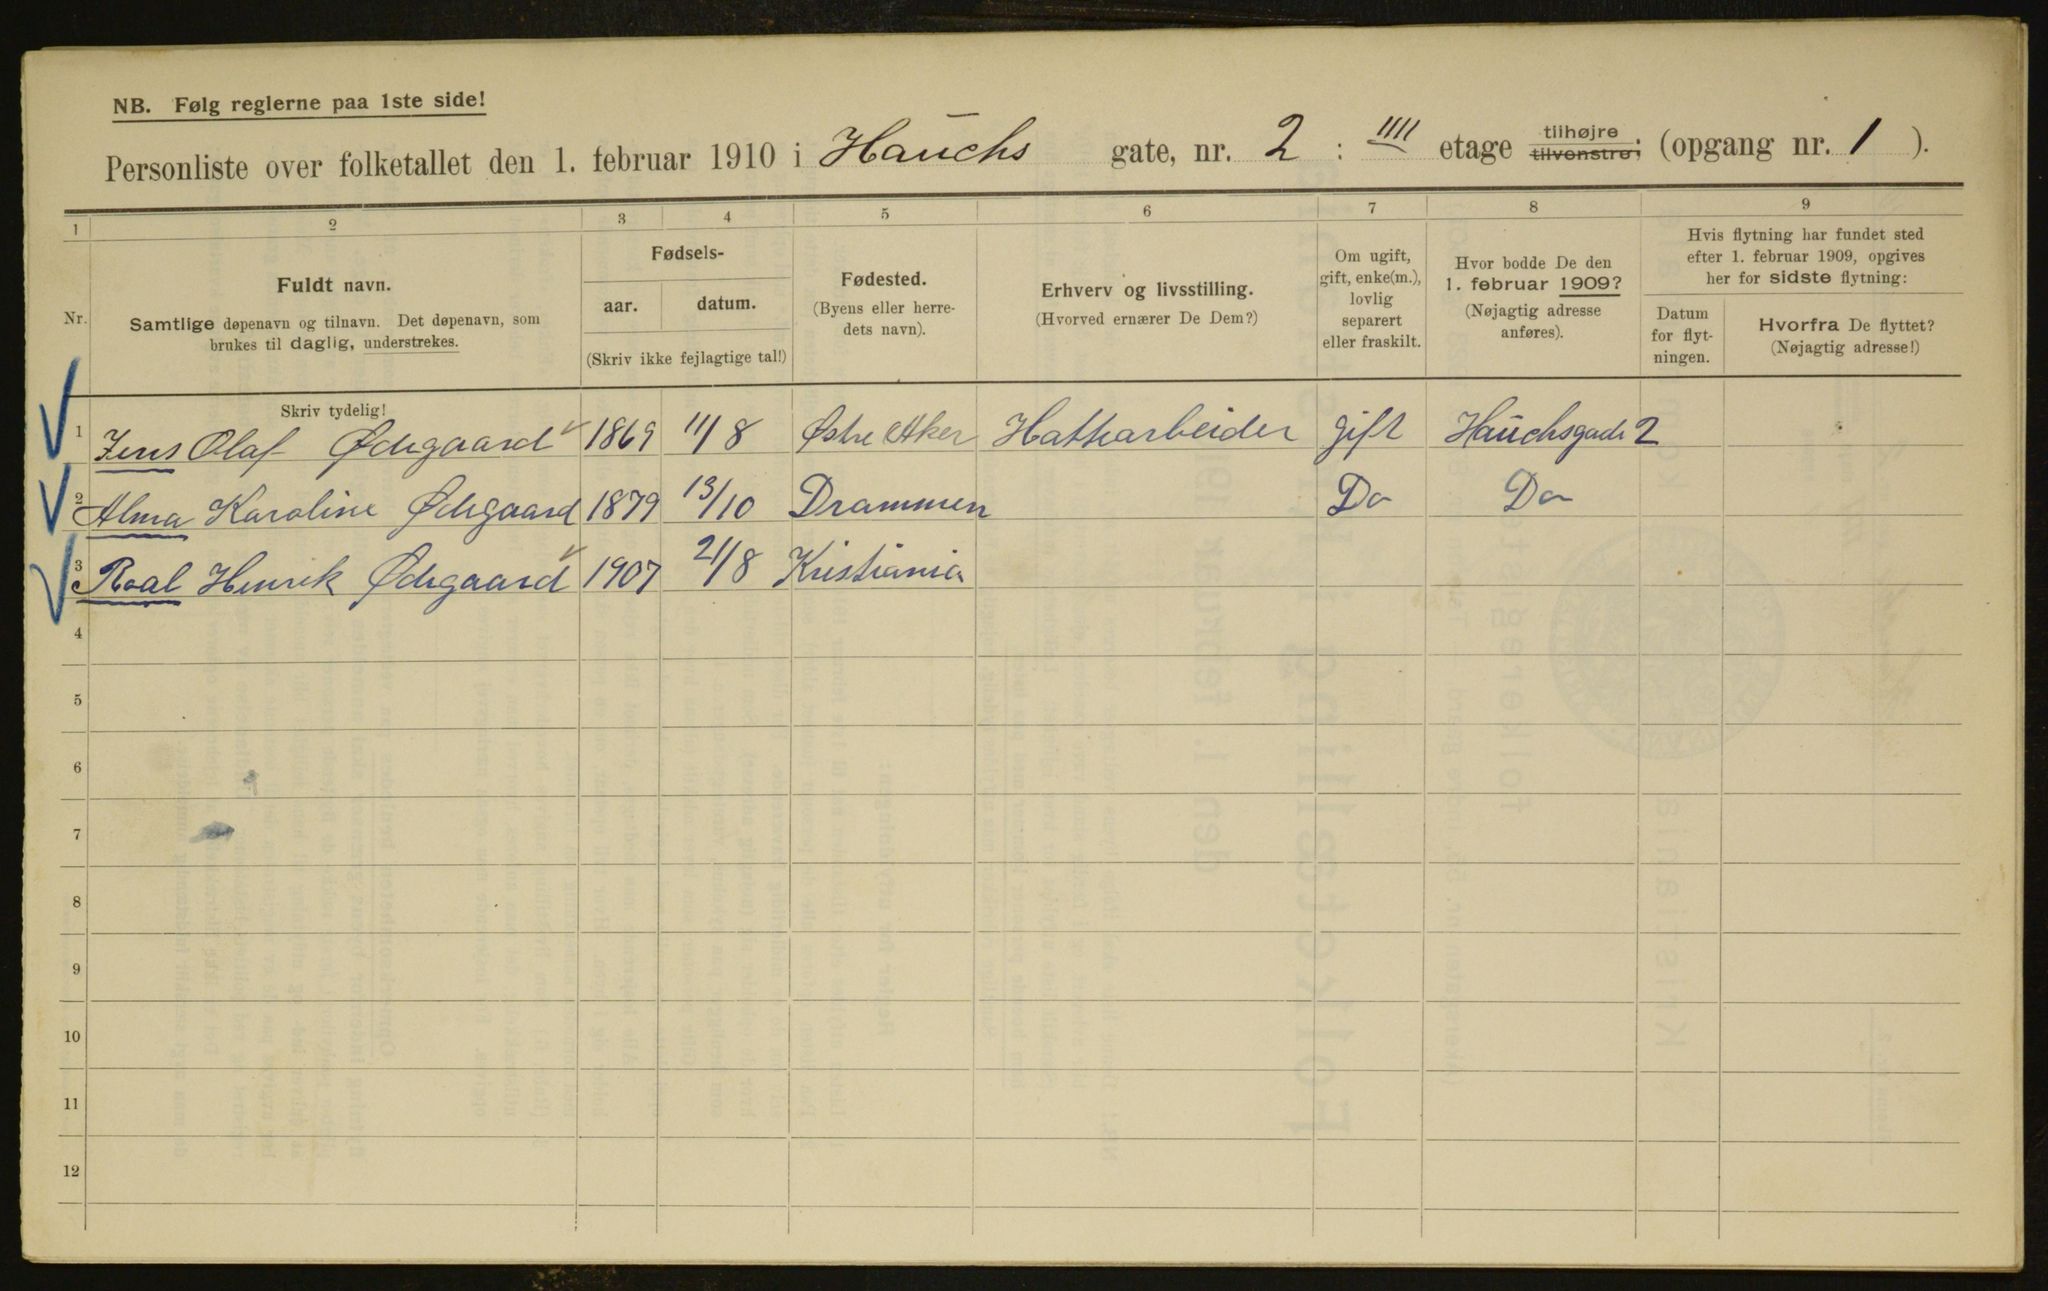 NB. Følg reglerne paa 1ste side!
Personliste over folketallet den 1. februar 1910 i Hauchs gate, nr. 2 : IIII etage tilhøjre tilvenstre; (opgang nr. 1 ).
1 2 3 4 5 6 7 8 9
Nr.
Fuldt navn.
Samtlige døpenavn og tilnavn. Det døpenavn, som
brukes til daglig, understrekes.
Fødsels-
aar. datum.
(Skriv ikke fejlagtige tal!)
Fødested.
(Byens eller herre-
dets navn).
Erhverv og livsstilling.
(Hvorved ernærer De Dem?)
Om ugift,
gift, enke(m.),
lovlig
separert
eller fraskilt.
Hvor bodde De den
1. februar 1909?
(Nøjagtig adresse
anføres).
Hvis flytning har fundet sted
efter 1. februar 1909, opgives
her for sidste flytning:
Datum
for flyt-
ningen.
Hvorfra De flyttet?
(Nøjagtig adresse!)
Skriv tydelig!
1 Jens Olaf Ødegaard 1869 11/8 Østre Aker Hattearbeider gift Hauchsgade 2
2 Alma Karoline Ødegaard 1879 13/10 Drammen Do Do
3 Roal Henrik Ødegaard 1907 21/8 Kristiania
4
5
6
7
8
9
10
11
12